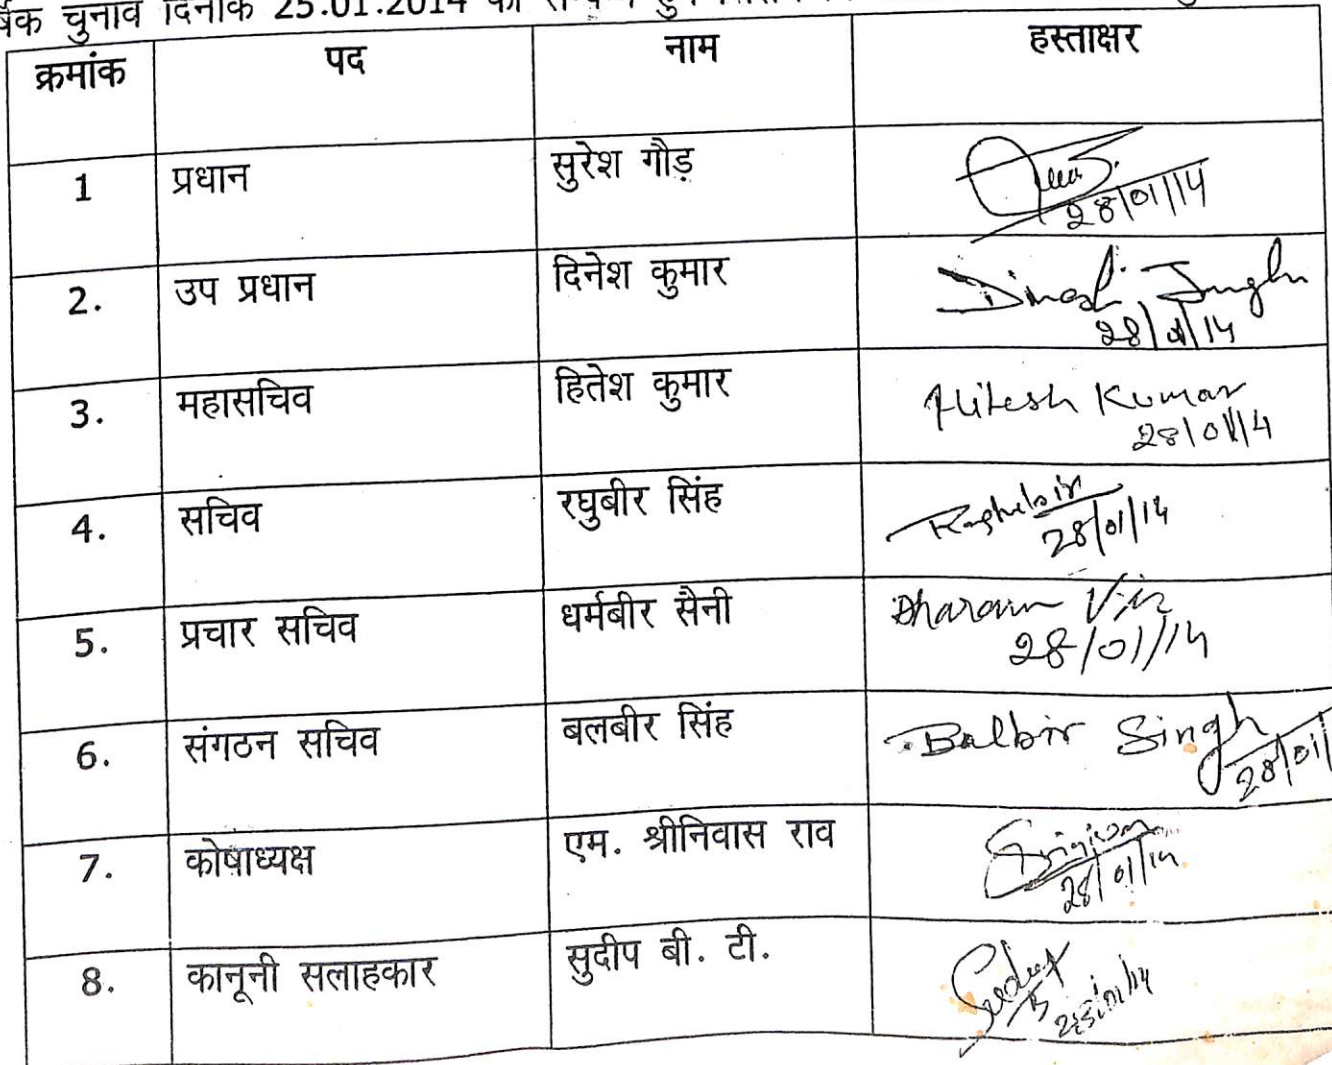 चुनाव दिनांक 25.01.2014 को
क्रमांक पद नाम हस्ताक्षर
1 प्रधान सुरेश गौड़ 28/01/14
2. उप प्रधान दिनेश कुमार Dinesh Singh 28/01/14
3. महासचिव हितेश कुमार Hitesh Kumar 28/01/14
4. सचिव रघुबीर सिंह Raghubir 28/01/14
5. प्रचार सचिव धर्मबीर सैनी Dharam Vir 28/01/14
6. संगठन सचिव बलबीर सिंह Balbir Singh 28/01/
7. कोषाध्यक्ष एम. श्रीनिवास राव 28/01/14
8. कानूनी सलाहकार सुदीप बी. टी. 28/01/14